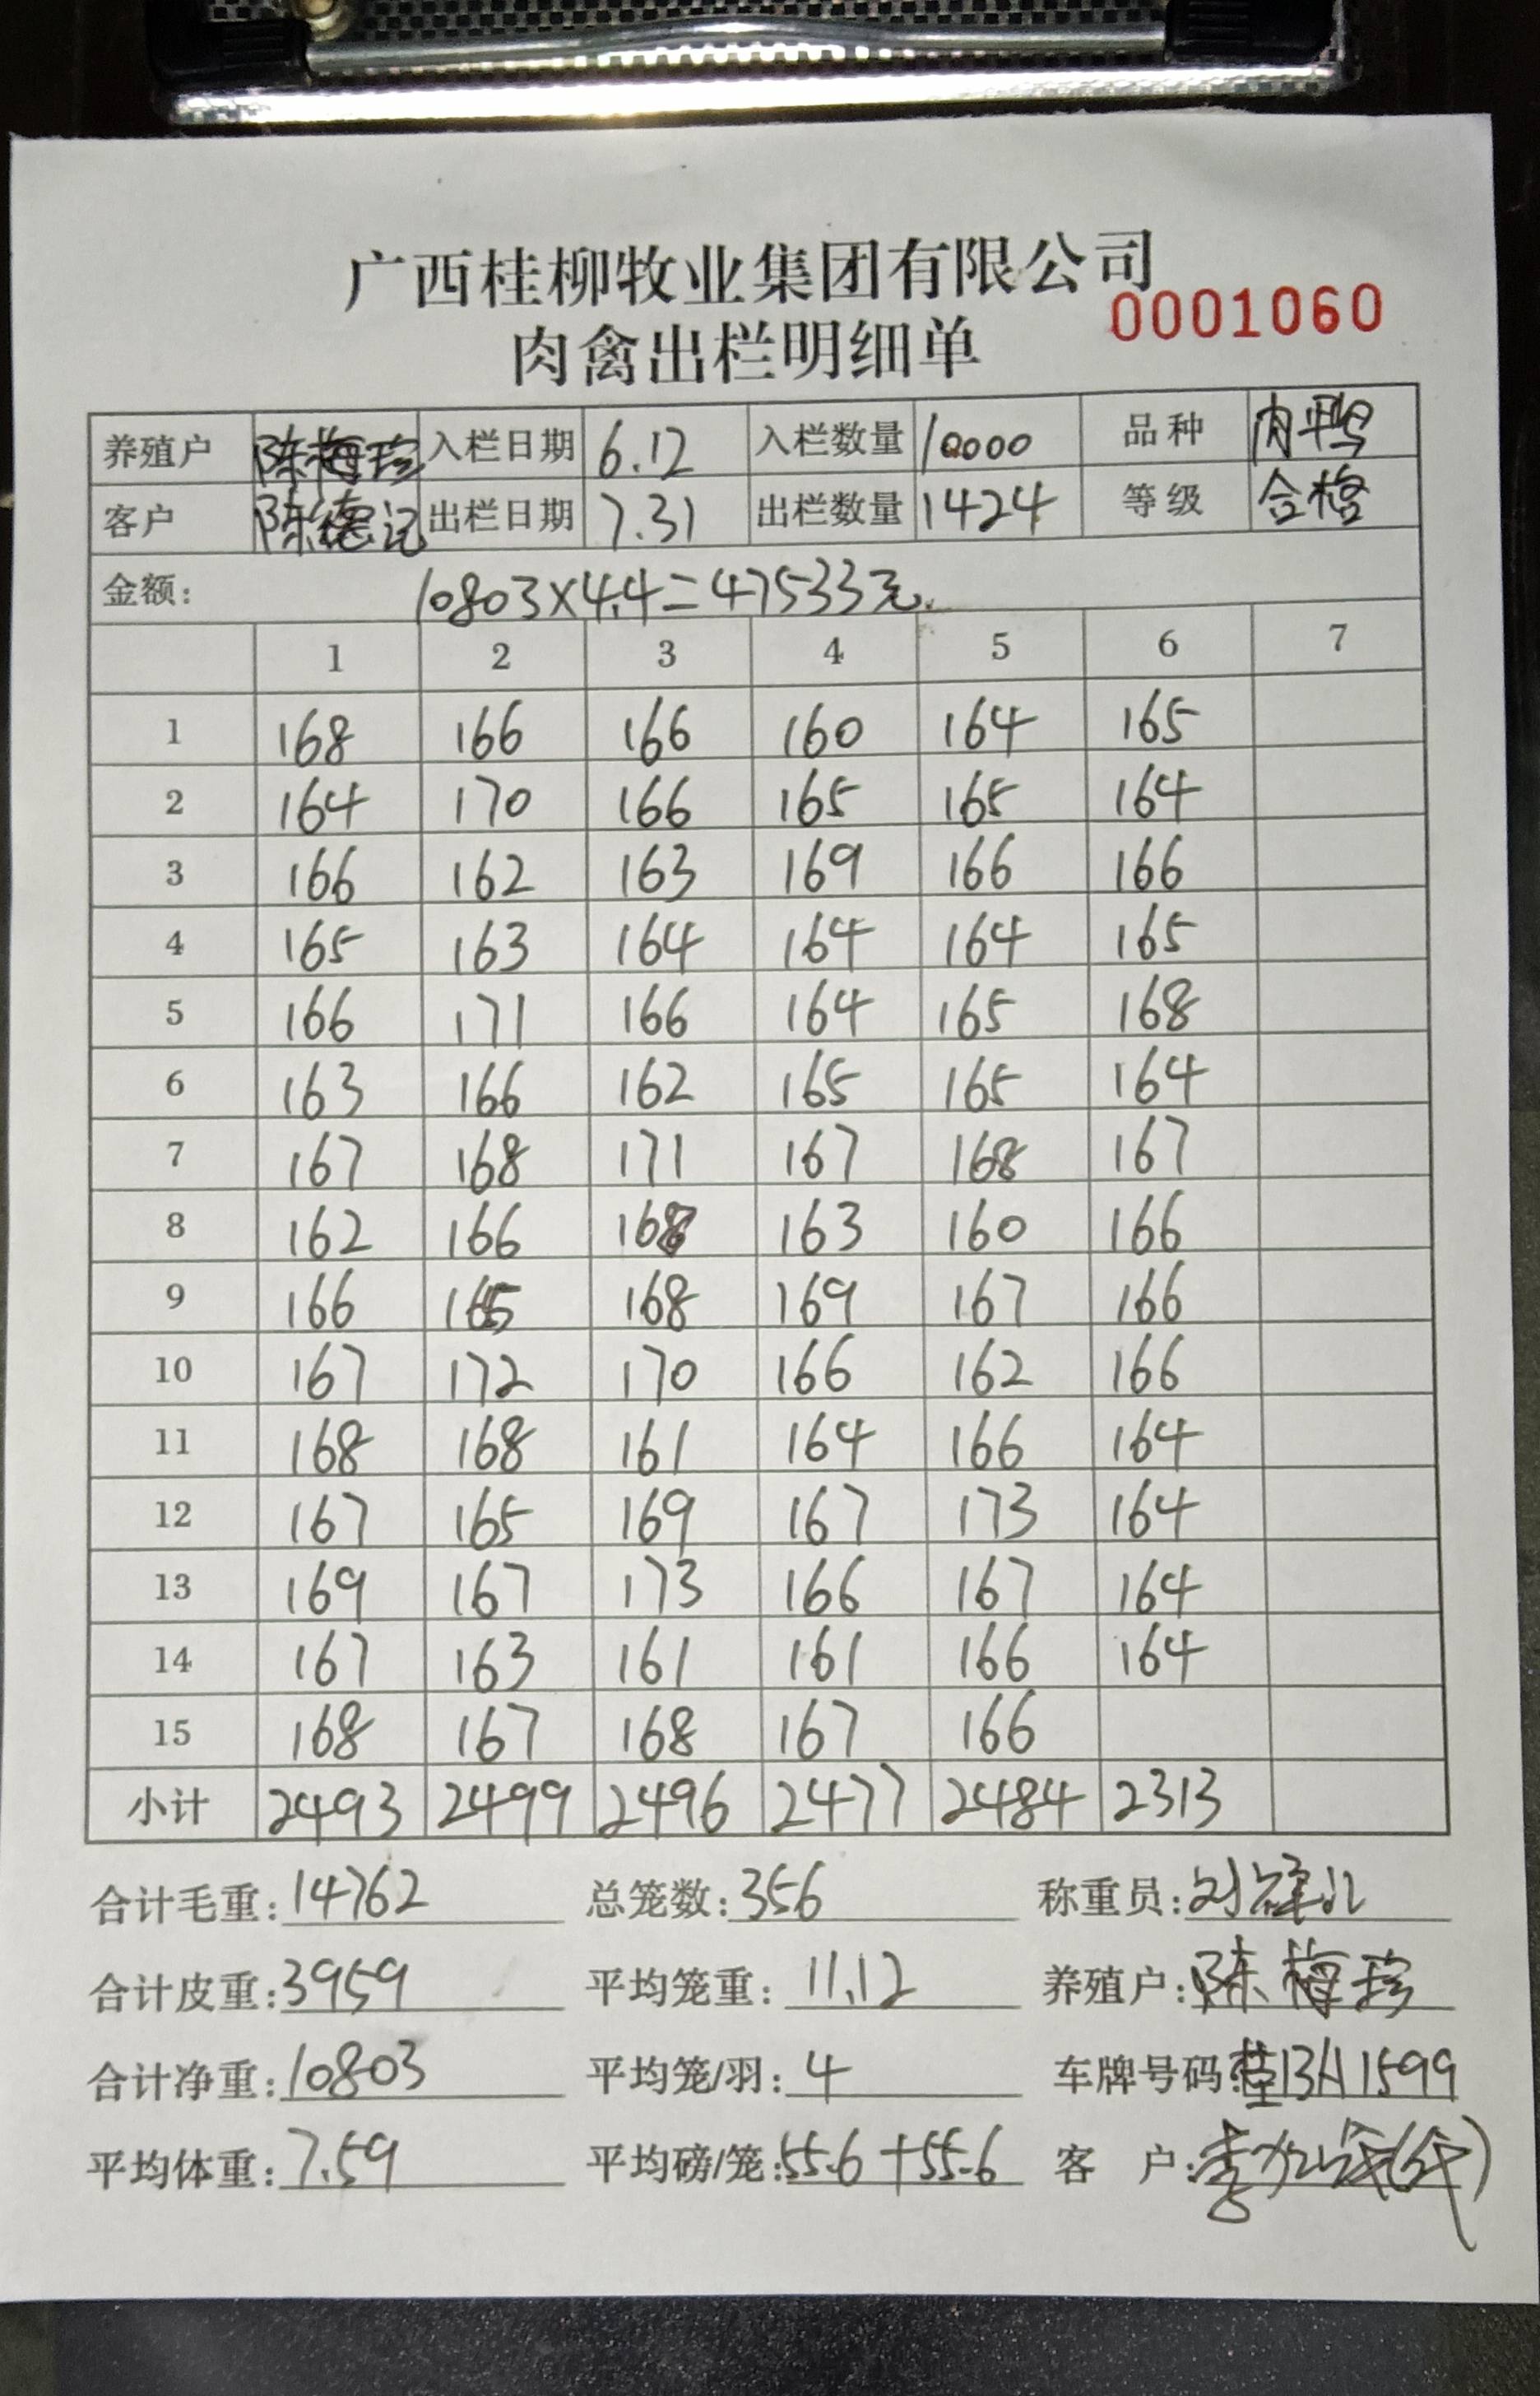 广西桂柳牧业集团有限公司
0001060
肉禽出栏明细单
养殖户 陈梅珍 入栏日期 6.12 入栏数量 10000 品种 肉鸭
客户 陈德记 出栏日期 7.31 出栏数量 1424 等级 合格
金额: 10803×4.4=47533元.
1 2 3 4 5 6 7
1 168 166 166 160 164 165
2 164 170 166 165 165 164
3 166 162 163 169 166 166
4 165 163 164 164 164 165
5 166 171 166 164 165 168
6 163 166 162 165 165 164
7 167 168 171 167 168 167
8 162 166 168 163 160 166
9 166 165 168 169 167 166
10 167 172 170 166 162 166
11 168 168 161 164 166 164
12 167 165 169 167 173 164
13 169 167 173 166 167 164
14 167 163 161 161 166 164
15 168 167 168 167 166
小计 2493 2499 2496 2477 2484 2313
合计毛重: 14762 总笼数: 356 称重员:
合计皮重: 3959 平均笼重: 11.12 养殖户: 陈梅珍
合计净重: 10803 平均笼/羽: 4 车牌号码: 桂BA1599
平均体重: 7.59 平均磅/笼: 55.6+55.6 客 户: